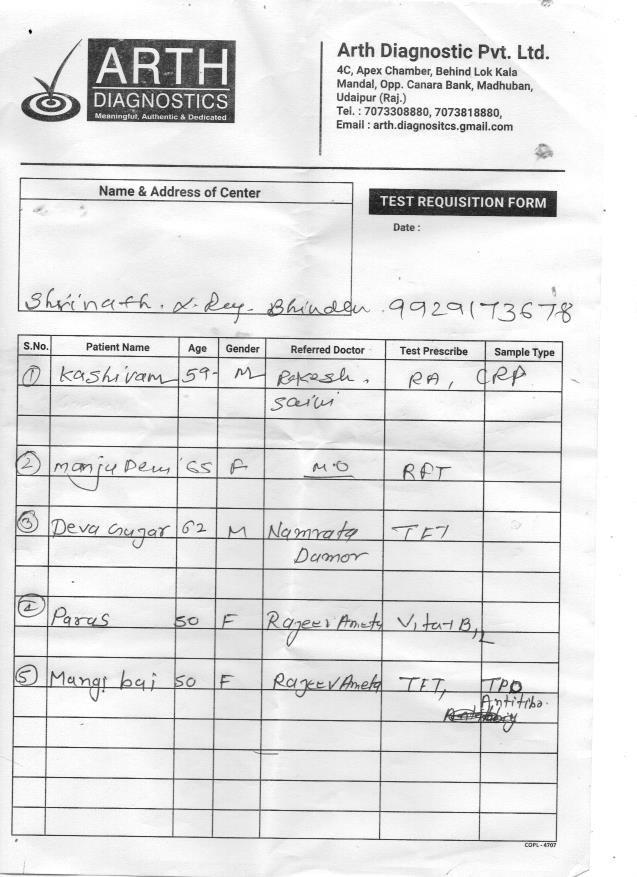 ARTH
DIAGNOSTICS
Meaningful, Authentic & Dedicated
Arth Diagnostic Pvt. Ltd.
4C, Apex Chamber, Behind Lok Kala
Mandal, Opp. Canara Bank, Madhuban,
Udaipur (Raj.)
Tel. : 7073308880, 7073818880,
Email : arth.diagnositcs.gmail.com
Name & Address of Center
TEST REQUISITION FORM
Date :
Shrinath. X-Ray- Bhinder. 9929173678
S.No. Patient Name Age Gender Referred Doctor Test Prescribe Sample Type
1 Kashiram 59- M Rakesh. RA, CRP
Saini
2 Manju Devi 65 F M.O RFT
3 Deva Gugar 62 M Namrata TFT
Damor
4 Paras 50 F Rajeev Ameta Vitat B12
5 Mangi bai 50 F Rajeev Ameta TFT, TPO
COPL - 4707